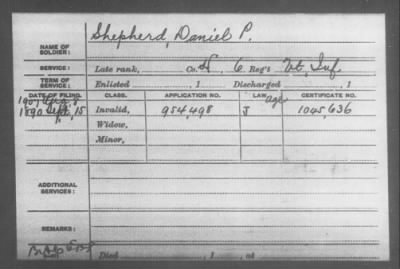 Shepherd, Daniel P.
NAME OF SOLDIER:
SERVICE: Late rank, Co. H, 6 Reg't Vt. Inf.
TERM OF SERVICE: Enlisted , 1 Discharged , 1
DATE OF FILING. CLASS. APPLICATION NO. LAW. CERTIFICATE NO.
1907 age
1890 Sept. 15 Invalid, 954,498 J 1045,636
Widow,
Minor,
ADDITIONAL SERVICES:
REMARKS:
Died , 1 , at